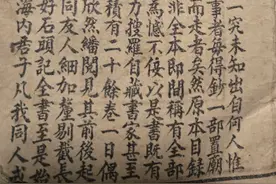 一究未知出自何人惟
事者每傳鈔一部置廟
而走者矣然原本目錄
非全本即間稱有全部
為憾不佞以是書既有
力搜羅自藏書家甚至
積有二十餘卷一日偶
欣然繙閱見其前後起
同友人細加釐剔截長
好石頭記全書至是始
海內君子凡我同人